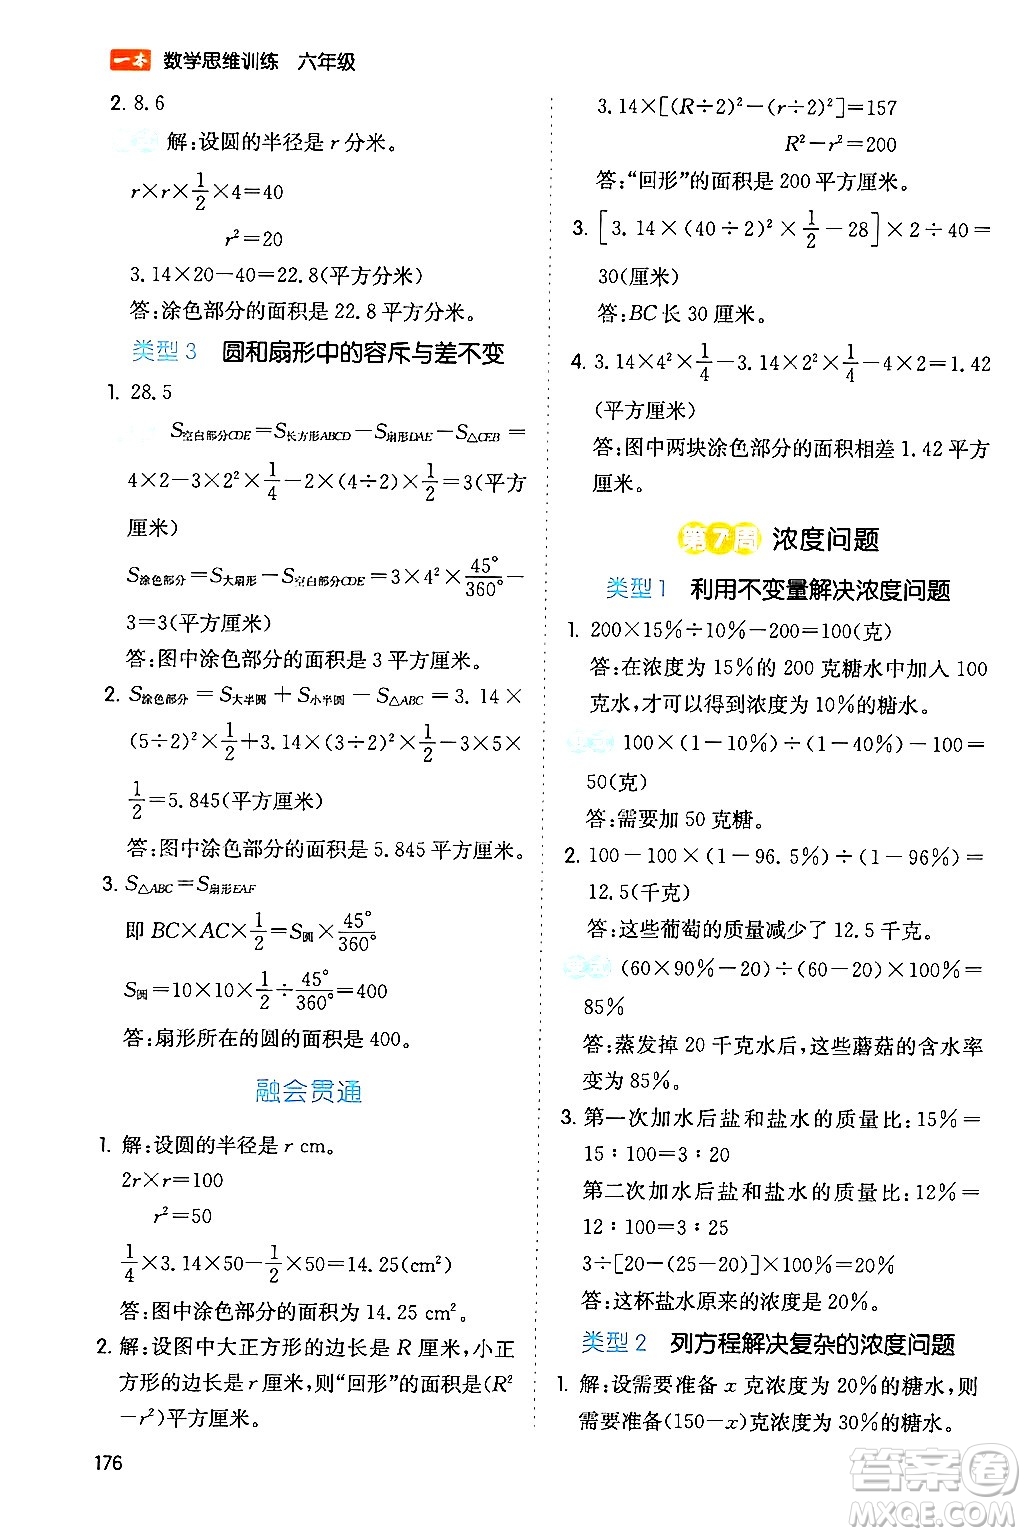 一本 数学思维训练 六年级
2. 8.6
解:设圆的半径是 r 分米。
r×r×1/2×4=40
r²=20
3.14×20-40=22.8(平方分米)
答:涂色部分的面积是 22.8 平方分米。
类型 3 圆和扇形中的容斥与差不变
1. 28.5
S空白部分CDE=S长方形ABCD-S扇形DAE-S△CEB=
4×2-3×2²×1/4-2×(4÷2)×1/2=3(平方
厘米)
S涂色部分=S大扇形-S空白部分CDE=3×4²×45°/360°-
3=3(平方厘米)
答:图中涂色部分的面积是 3 平方厘米。
2. S涂色部分=S大半圆+S小半圆-S△ABC=3.14×
(5÷2)²×1/2+3.14×(3÷2)²×1/2-3×5×
1/2=5.845(平方厘米)
答:图中涂色部分的面积是 5.845 平方厘米。
3. S△ABC=S扇形EAF
即 BC×AC×1/2=S圆×45°/360°
S圆=10×10×1/2÷45°/360°=400
答:扇形所在的圆的面积是 400。
融会贯通
1. 解:设圆的半径是 r cm。
2r×r=100
r²=50
1/4×3.14×50-1/2×50=14.25(cm²)
答:图中涂色部分的面积为 14.25 cm²。
2. 解:设图中大正方形的边长是 R 厘米,小正
方形的边长是 r 厘米,则“回形”的面积是(R²
-r²)平方厘米。
176
3.14×[(R÷2)²-(r÷2)²]=157
R²-r²=200
答:“回形”的面积是 200 平方厘米。
3. [3.14×(40÷2)²×1/2-28]×2÷40=
30(厘米)
答:BC 长 30 厘米。
4. 3.14×4²×1/4-3.14×2²×1/4-4×2=1.42
(平方厘米)
答:图中两块涂色部分的面积相差 1.42 平方
厘米。
第7周 浓度问题
类型 1 利用不变量解决浓度问题
1. 200×15%÷10%-200=100(克)
答:在浓度为 15%的 200 克糖水中加入 100
克水,可以得到浓度为 10%的糖水。
100×(1-10%)÷(1-40%)-100=
50(克)
答:需要加 50 克糖。
2. 100-100×(1-96.5%)÷(1-96%)=
12.5(千克)
答:这些葡萄的质量减少了 12.5 千克。
(60×90%-20)÷(60-20)×100%=
85%
答:蒸发掉 20 千克水后,这些蘑菇的含水率
变为 85%。
3. 第一次加水后盐和盐水的质量比:15%=
15∶100=3∶20
第二次加水后盐和盐水的质量比:12%=
12∶100=3∶25
3÷[20-(25-20)]×100%=20%
答:这杯盐水原来的浓度是 20%。
类型 2 列方程解决复杂的浓度问题
1. 解:设需要准备 x 克浓度为 20%的糖水,则
需要准备(150-x)克浓度为 30%的糖水。
答案卷
MXQE.COM